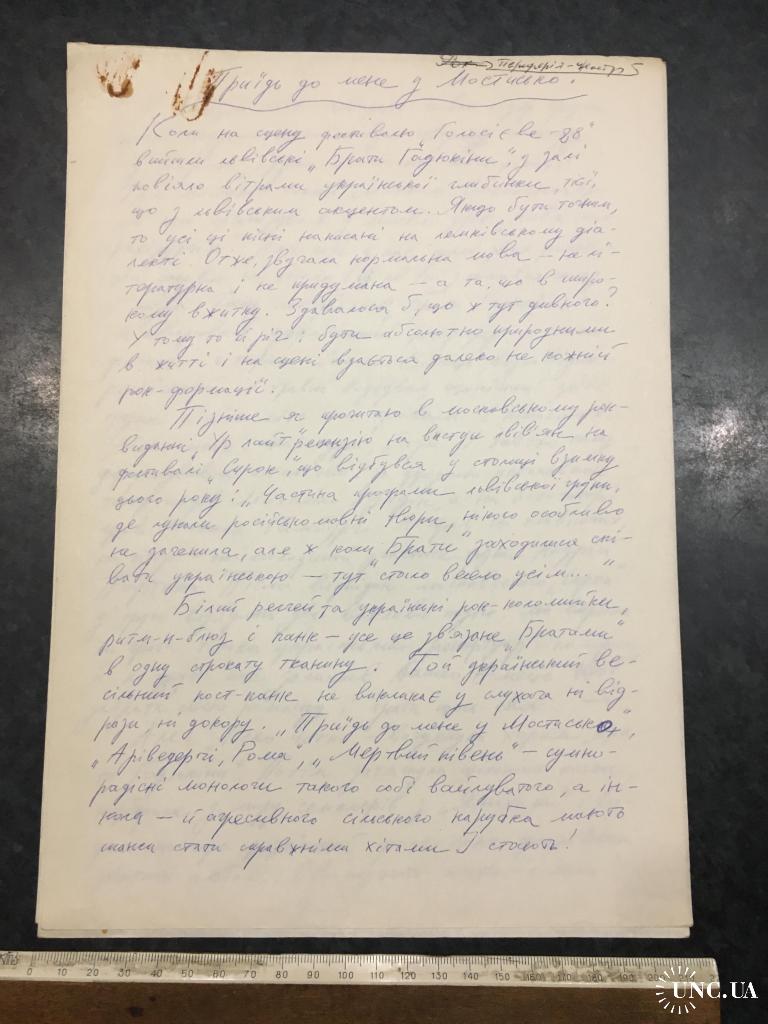 Периферія-центр 5
Приїдь до мене у Мостиська.
Коли на сцену фестивалю „Голосієве-88"
вийшли львівські „Брати Гадюкіни", у залі
повіяло вітрами української глибинки, тієї,
що з львівським акцентом. Якщо бути точним,
то усі ці пісні написані на лемківському діа-
лекті. Отже, звучала нормальна мова — не лі-
торатурна і не придумана — а та, що в широ-
кому вжитку. Здавалося б, що ж тут дивного?
У тому то й річ: бути абсолютно природними
в житті і на сцені вдається далеко не кожній
рок-формації.
Пізніше я прочитаю в московському рок-
виданні „Ур лайт" рецензію на виступ львів'ян на
фестивалі „Сырок", що відбувся у столиці взимку
цього року: „Частина програми львівської групи,
де лунали російськомовні твори, нікого особливо
не зачепила, але ж коли „Брати" заходилися спі-
вати українською — тут стало весело усім..."
Білий реггей та українські рок-коломийки,
ритм-н-блюз і панк — усе це зв'язане „Братами"
в одну строкату тканину. Той український ве-
сільний пост-панк не викликає у слухача ні від-
рази, ні докору. „Приїдь до мене у Мостиська",
„Арівередчі, Рома", „Мертвий півень" — сумно-
радісні монологи такого собі вайлуватого, а ін-
коли — й агресивного сільського парубка мають
шанси стати справжніми хітами. І стають!
0 10 20 30 40 50 60 70 80 90 100 110 120 130 140 150 160 170 180 190 200
UNC.UA